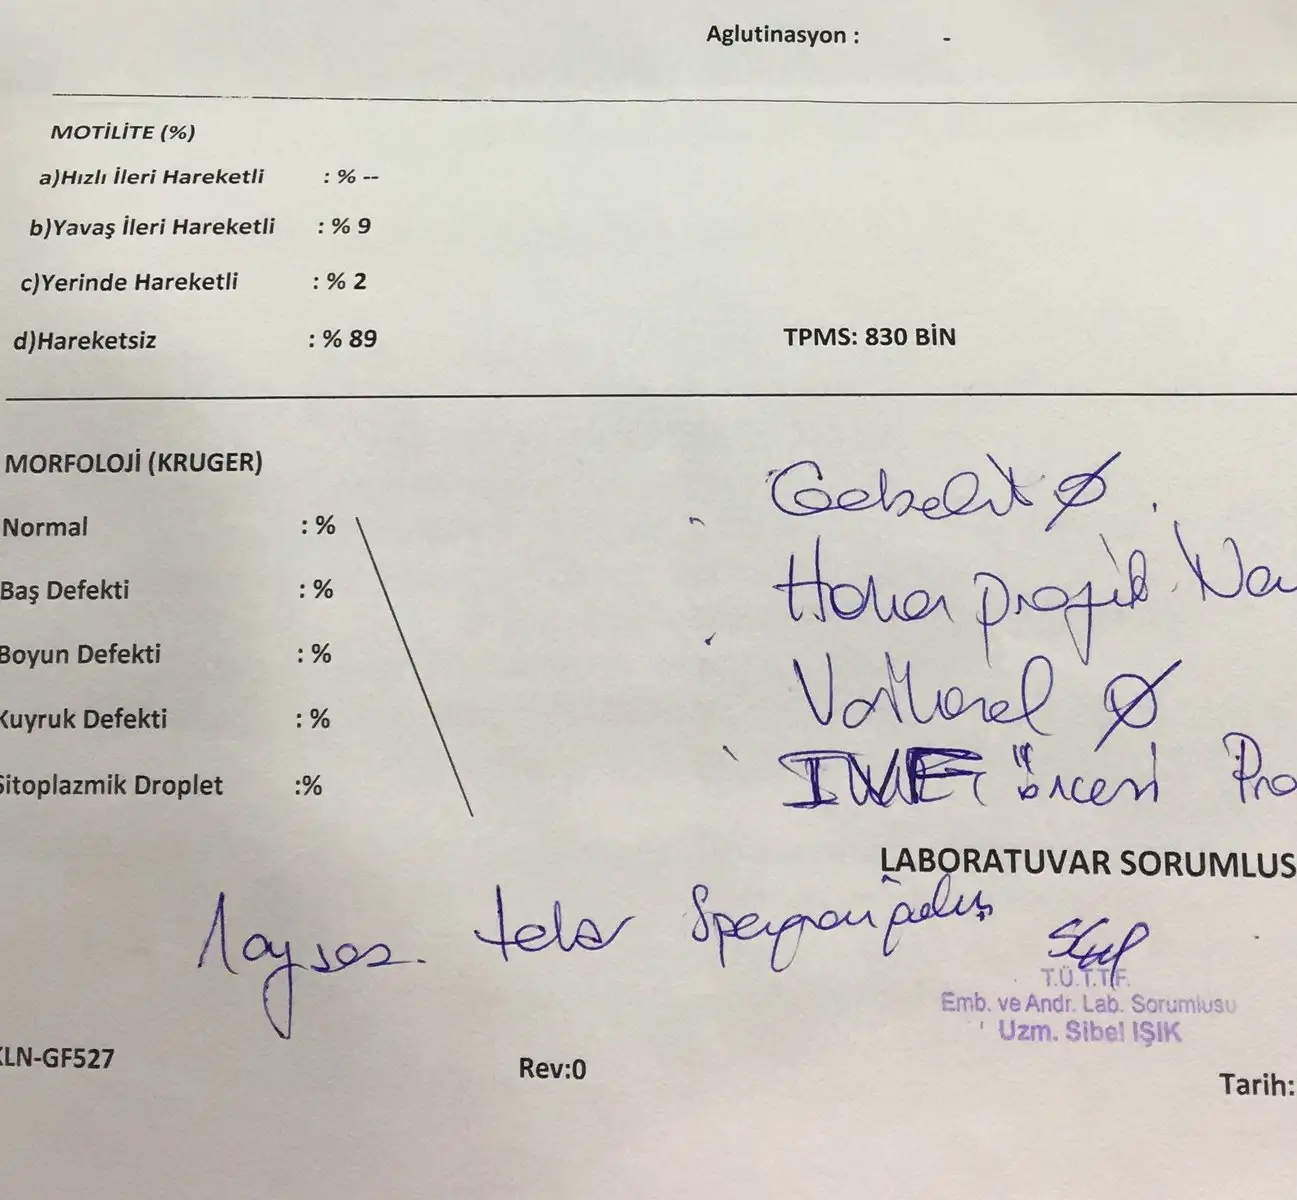 Aglutinasyon : -
MOTİLİTE (%)
a)Hızlı İleri Hareketli : % --
b)Yavaş İleri Hareketli : % 9
c)Yerinde Hareketli : % 2
d)Hareketsiz : % 89
TPMS: 830 BİN
MORFOLOJİ (KRUGER)
Normal : %
Baş Defekti : %
Boyun Defekti : %
Kuyruk Defekti : %
Sitoplazmik Droplet :%
Gebelik Ø
Hormon profili No
Varikosel Ø
öncesi Pro
LABORATUVAR SORUMLUS
tekrar Spermiogram
T.Ü.T.F.
Emb. ve Andr. Lab. Sorumlusu
Uzm. Sibel IŞIK
KLN-GF527
Rev:0
Tarih: